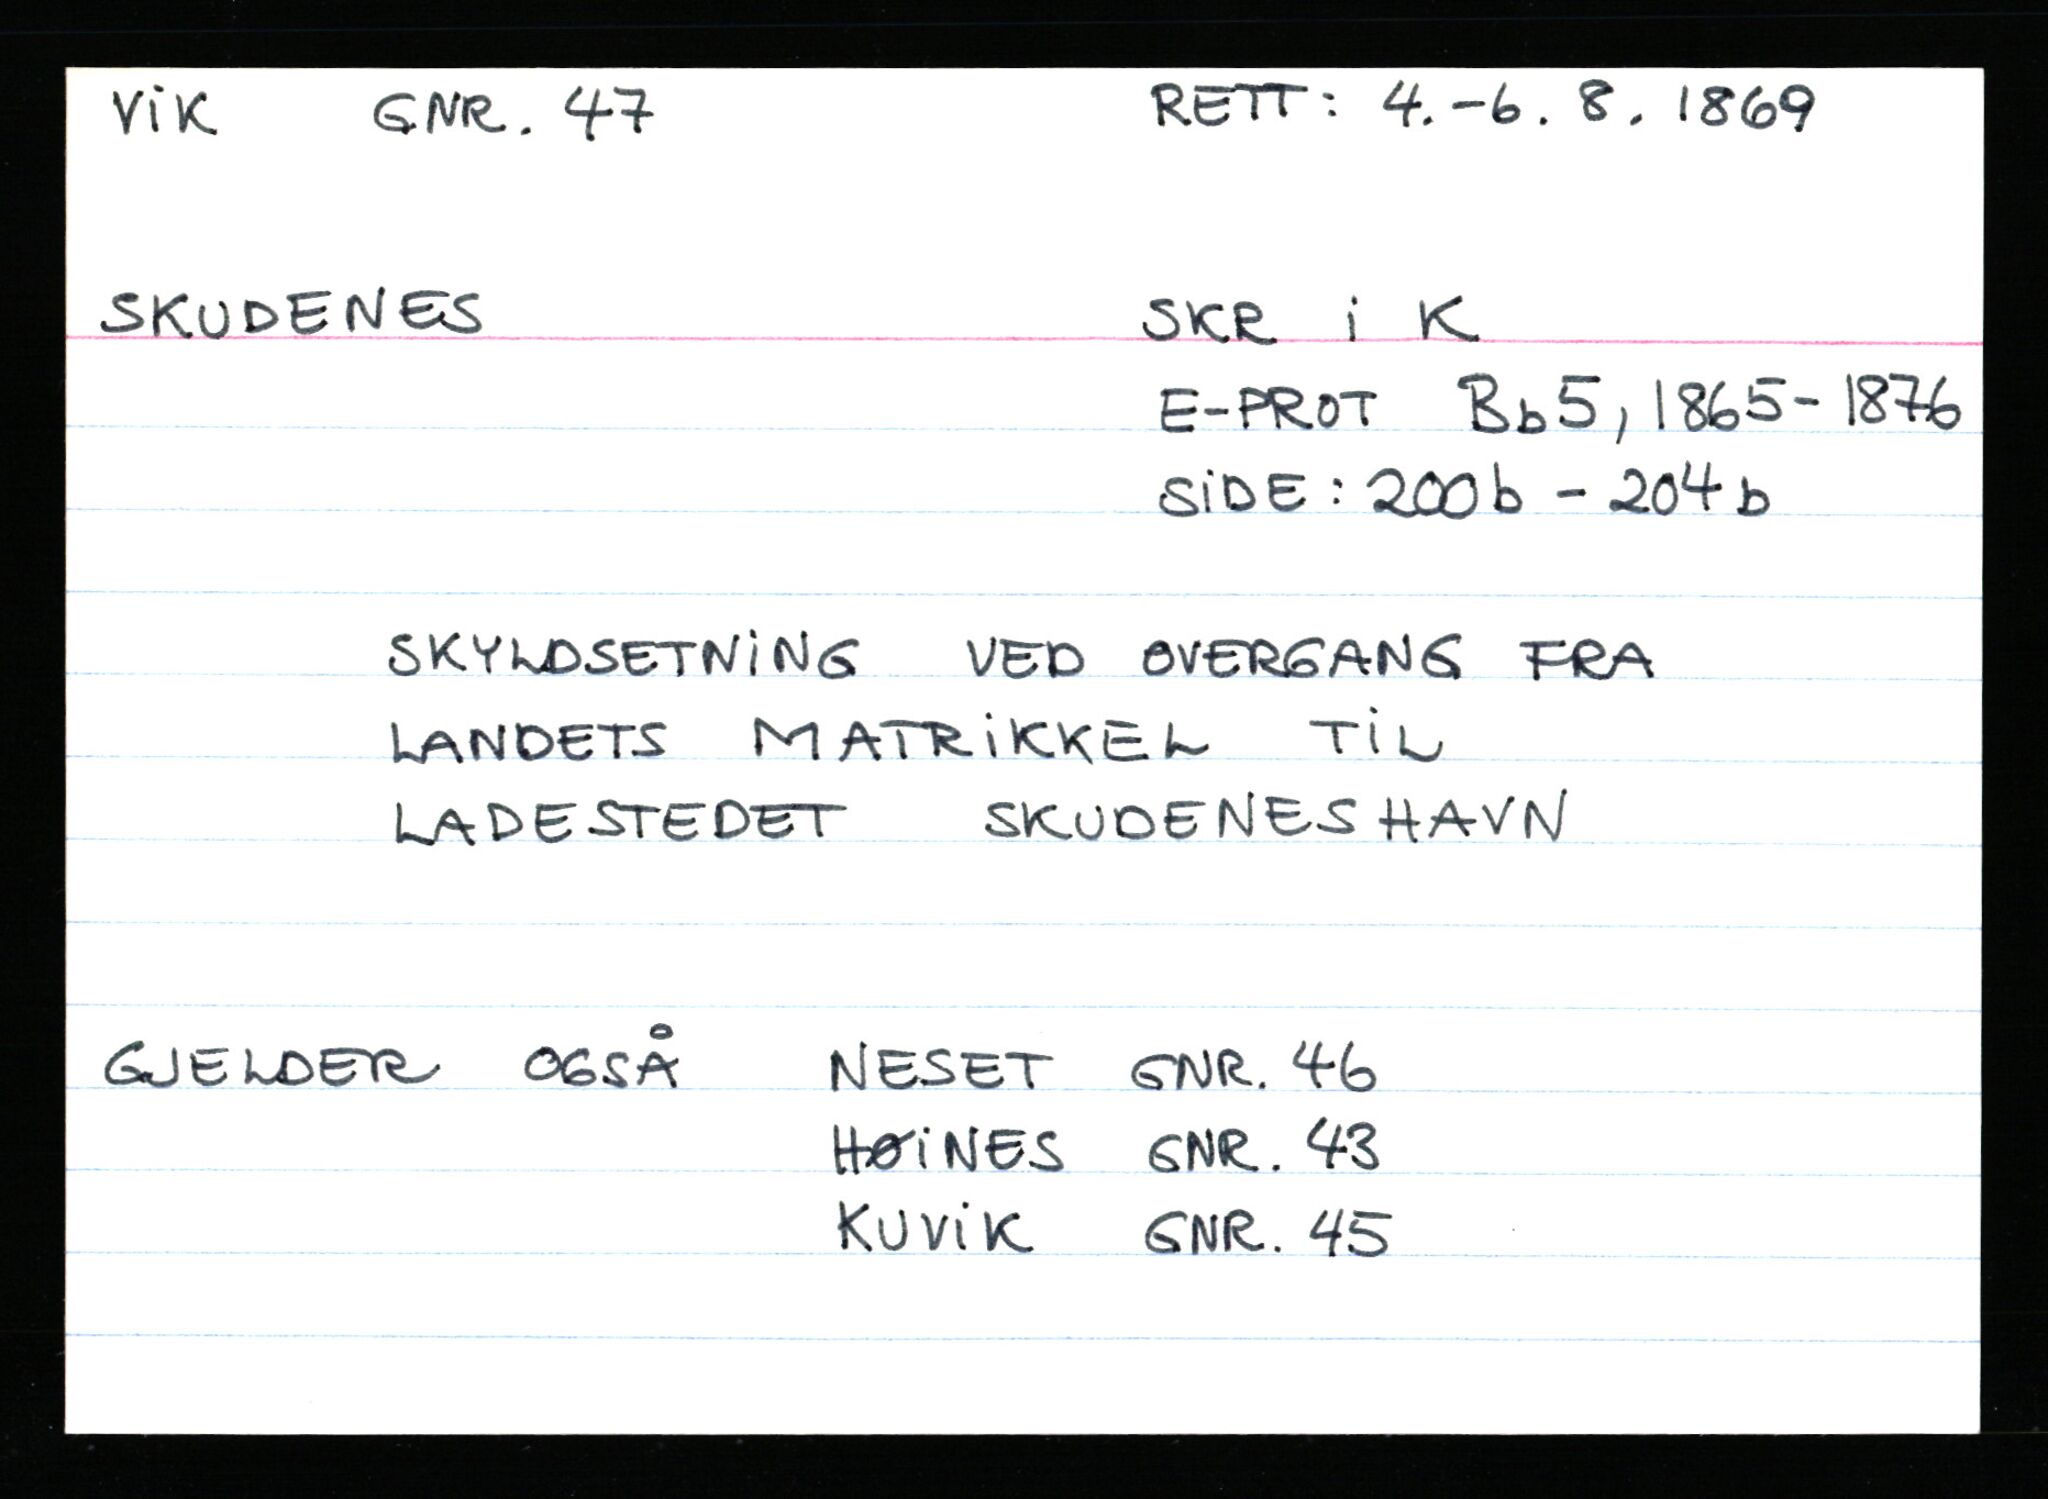 ViK GNR. 47 RETT: 4.-6. 8. 1869
SKUDENES SKR i K
E-PROT Bb5, 1865-1876
SiDE: 200b - 204b
SKYLDSETNiNG VED OVERGANG FRA
LANDETS MATRiKKEL TiL
LADESTEDET SKUDENESHAVN
GJELDER OGSÅ NESET GNR. 46
HØiNES GNR. 43
KUViK GNR. 45